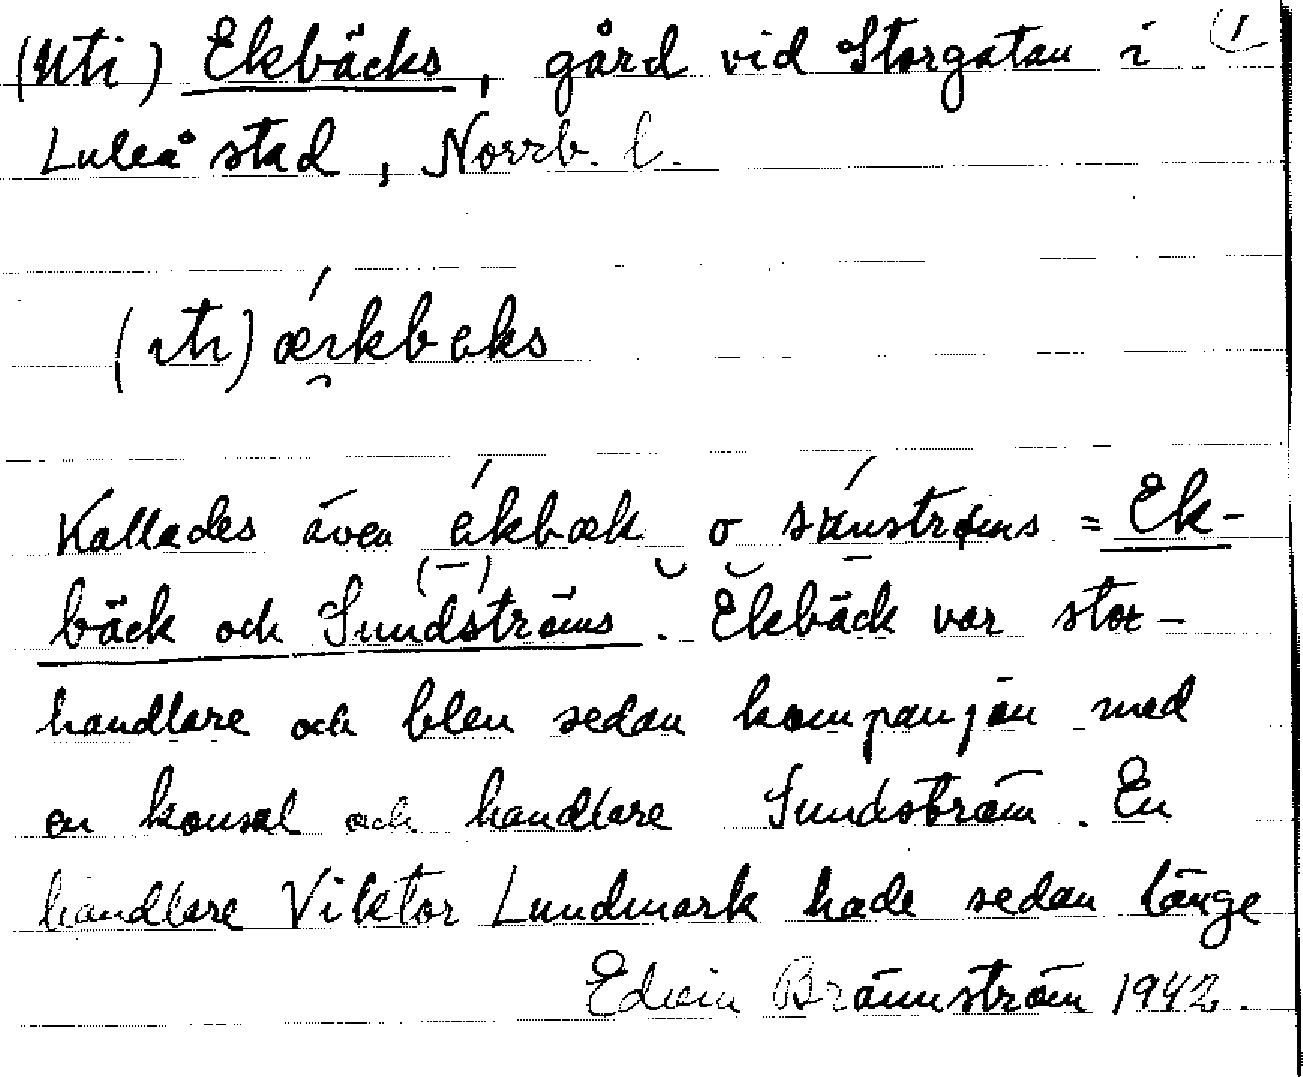 (uti) Ekbäcks, gård vid Storgatan i (1
Luleå stad, Norrb. l.
Kallades även
o = Ek-
bäck och Sundströms. Ekbäck var stor-
handlare och blev sedan kompanjon med
en konsul och handlare Sundström. En
handlare Viktor Lundmark hade sedan länge
Edvin Brännström 1942.